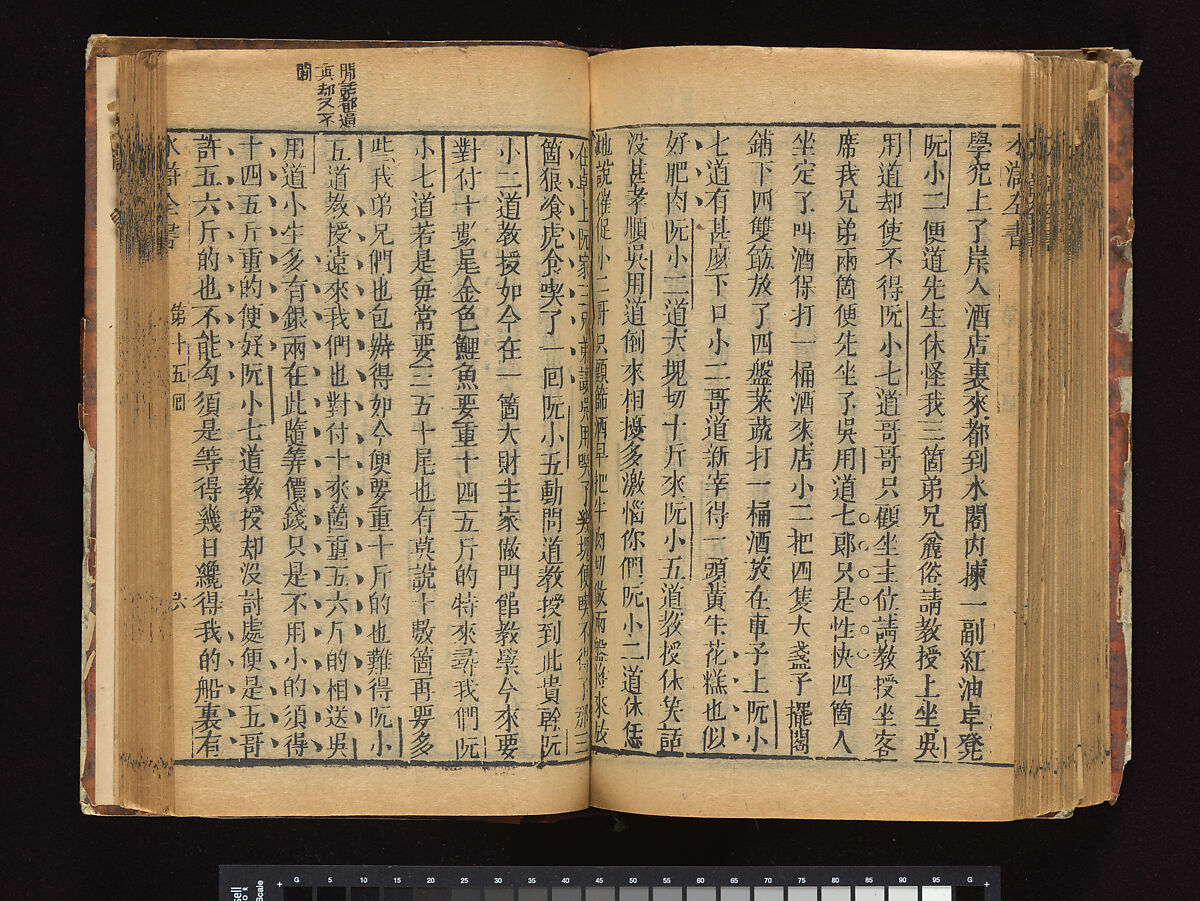 水滸全書
學究上了岸入酒店裏來都到水閣內揀一副紅油卓凳
阮小二便道先生休怪我三箇弟兄麄俗請教授上坐吳
用道却使不得阮小七道哥哥只顧坐主位請教授坐客
席我兄弟兩箇便先坐了吳用道七郎只是性快四箇人
坐定了叫酒保打一桶酒來店小二把四隻大盞子擺開
鋪下四雙筯放了四盤菜蔬打一桶酒放在卓子上阮小
七道有甚麼下口小二哥道新宰得一頭黃牛花糕也似
好肥肉阮小二道大塊切十斤來阮小五道教授休笑話
沒甚孝順吳用道倒來相擾多激惱你們阮小二道休恁
地說催促小二哥只顧篩酒早把牛肉切做兩盤將來放
在卓上阮家三兄弟讓吳用喫了幾塊便喫不得了那三
箇狼飡虎食喫了一回阮小五動問道教授到此貴幹阮
小二道教授如今在一箇大財主家做門館教學今來要
對付十數尾金色鯉魚要重十四五斤的特來尋我們阮
小七道若是每常要三五十尾也有莫說十數箇再要多
些我弟兄們也包辦得如今便要重十斤的也難得阮小
五道教授遠來我們也對付十來箇重五六斤的相送吳
用道小生多有銀兩在此隨筭價錢只是不用小的須得
十四五斤重的便好阮小七道教授却沒討處便是五哥
許五六斤的也不能勾須是等得幾日纔得我的船裏有
閒話都逼
真却又不
閒
水滸全書
第十五囘
六